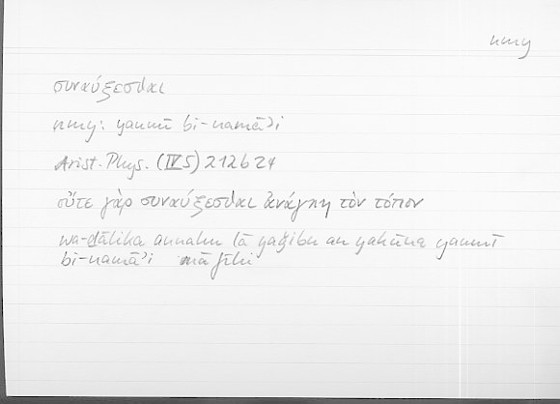 nmy
συναύξεσθαι
nmy: yanmī bi-namāʾi
Arist. Phys. (IV 5) 212b24
οὔτε γὰρ συναύξεσθαι ἀνάγκη τὸν τόπον
wa-ḏālika annahu lā yaǧibu an yakūna yanmī
bi-namāʾi mā fīhi